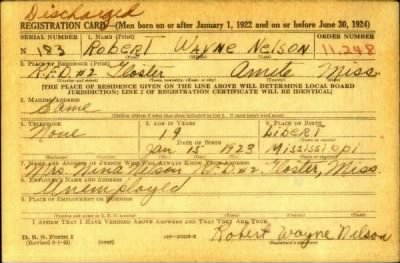 Discharged
REGISTRATION CARD—(Men born on or after January 1, 1922 and on or before June 30, 1924)
SERIAL NUMBER 1. NAME (Print) ORDER NUMBER
N 183 ROBERT WAYNE NELSON 11,248
2. PLACE OF RESIDENCE (Print)
R.F.D. #2 Gloster Amite Miss.
[THE PLACE OF RESIDENCE GIVEN ON THE LINE ABOVE WILL DETERMINE LOCAL BOARD
JURISDICTION; LINE 2 OF REGISTRATION CERTIFICATE WILL BE IDENTICAL]
3. MAILING ADDRESS
Same
4. TELEPHONE 5. AGE IN YEARS 6. PLACE OF BIRTH
None 19 LIBERTY
DATE OF BIRTH
Jan 15 1923 Mississippi
7. NAME AND ADDRESS OF PERSON WHO WILL ALWAYS KNOW YOUR ADDRESS
Mrs. Nina Nelson R.F.D. #2 Gloster, Miss.
8. EMPLOYER'S NAME AND ADDRESS
Unemployed
9. PLACE OF EMPLOYMENT OR BUSINESS
I AFFIRM THAT I HAVE VERIFIED ABOVE ANSWERS AND THAT THEY ARE TRUE.
D. S. S. Form 1
Robert Wayne Nelson